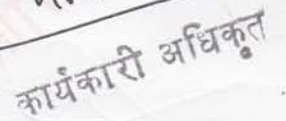 कार्यकारी अधिकृत